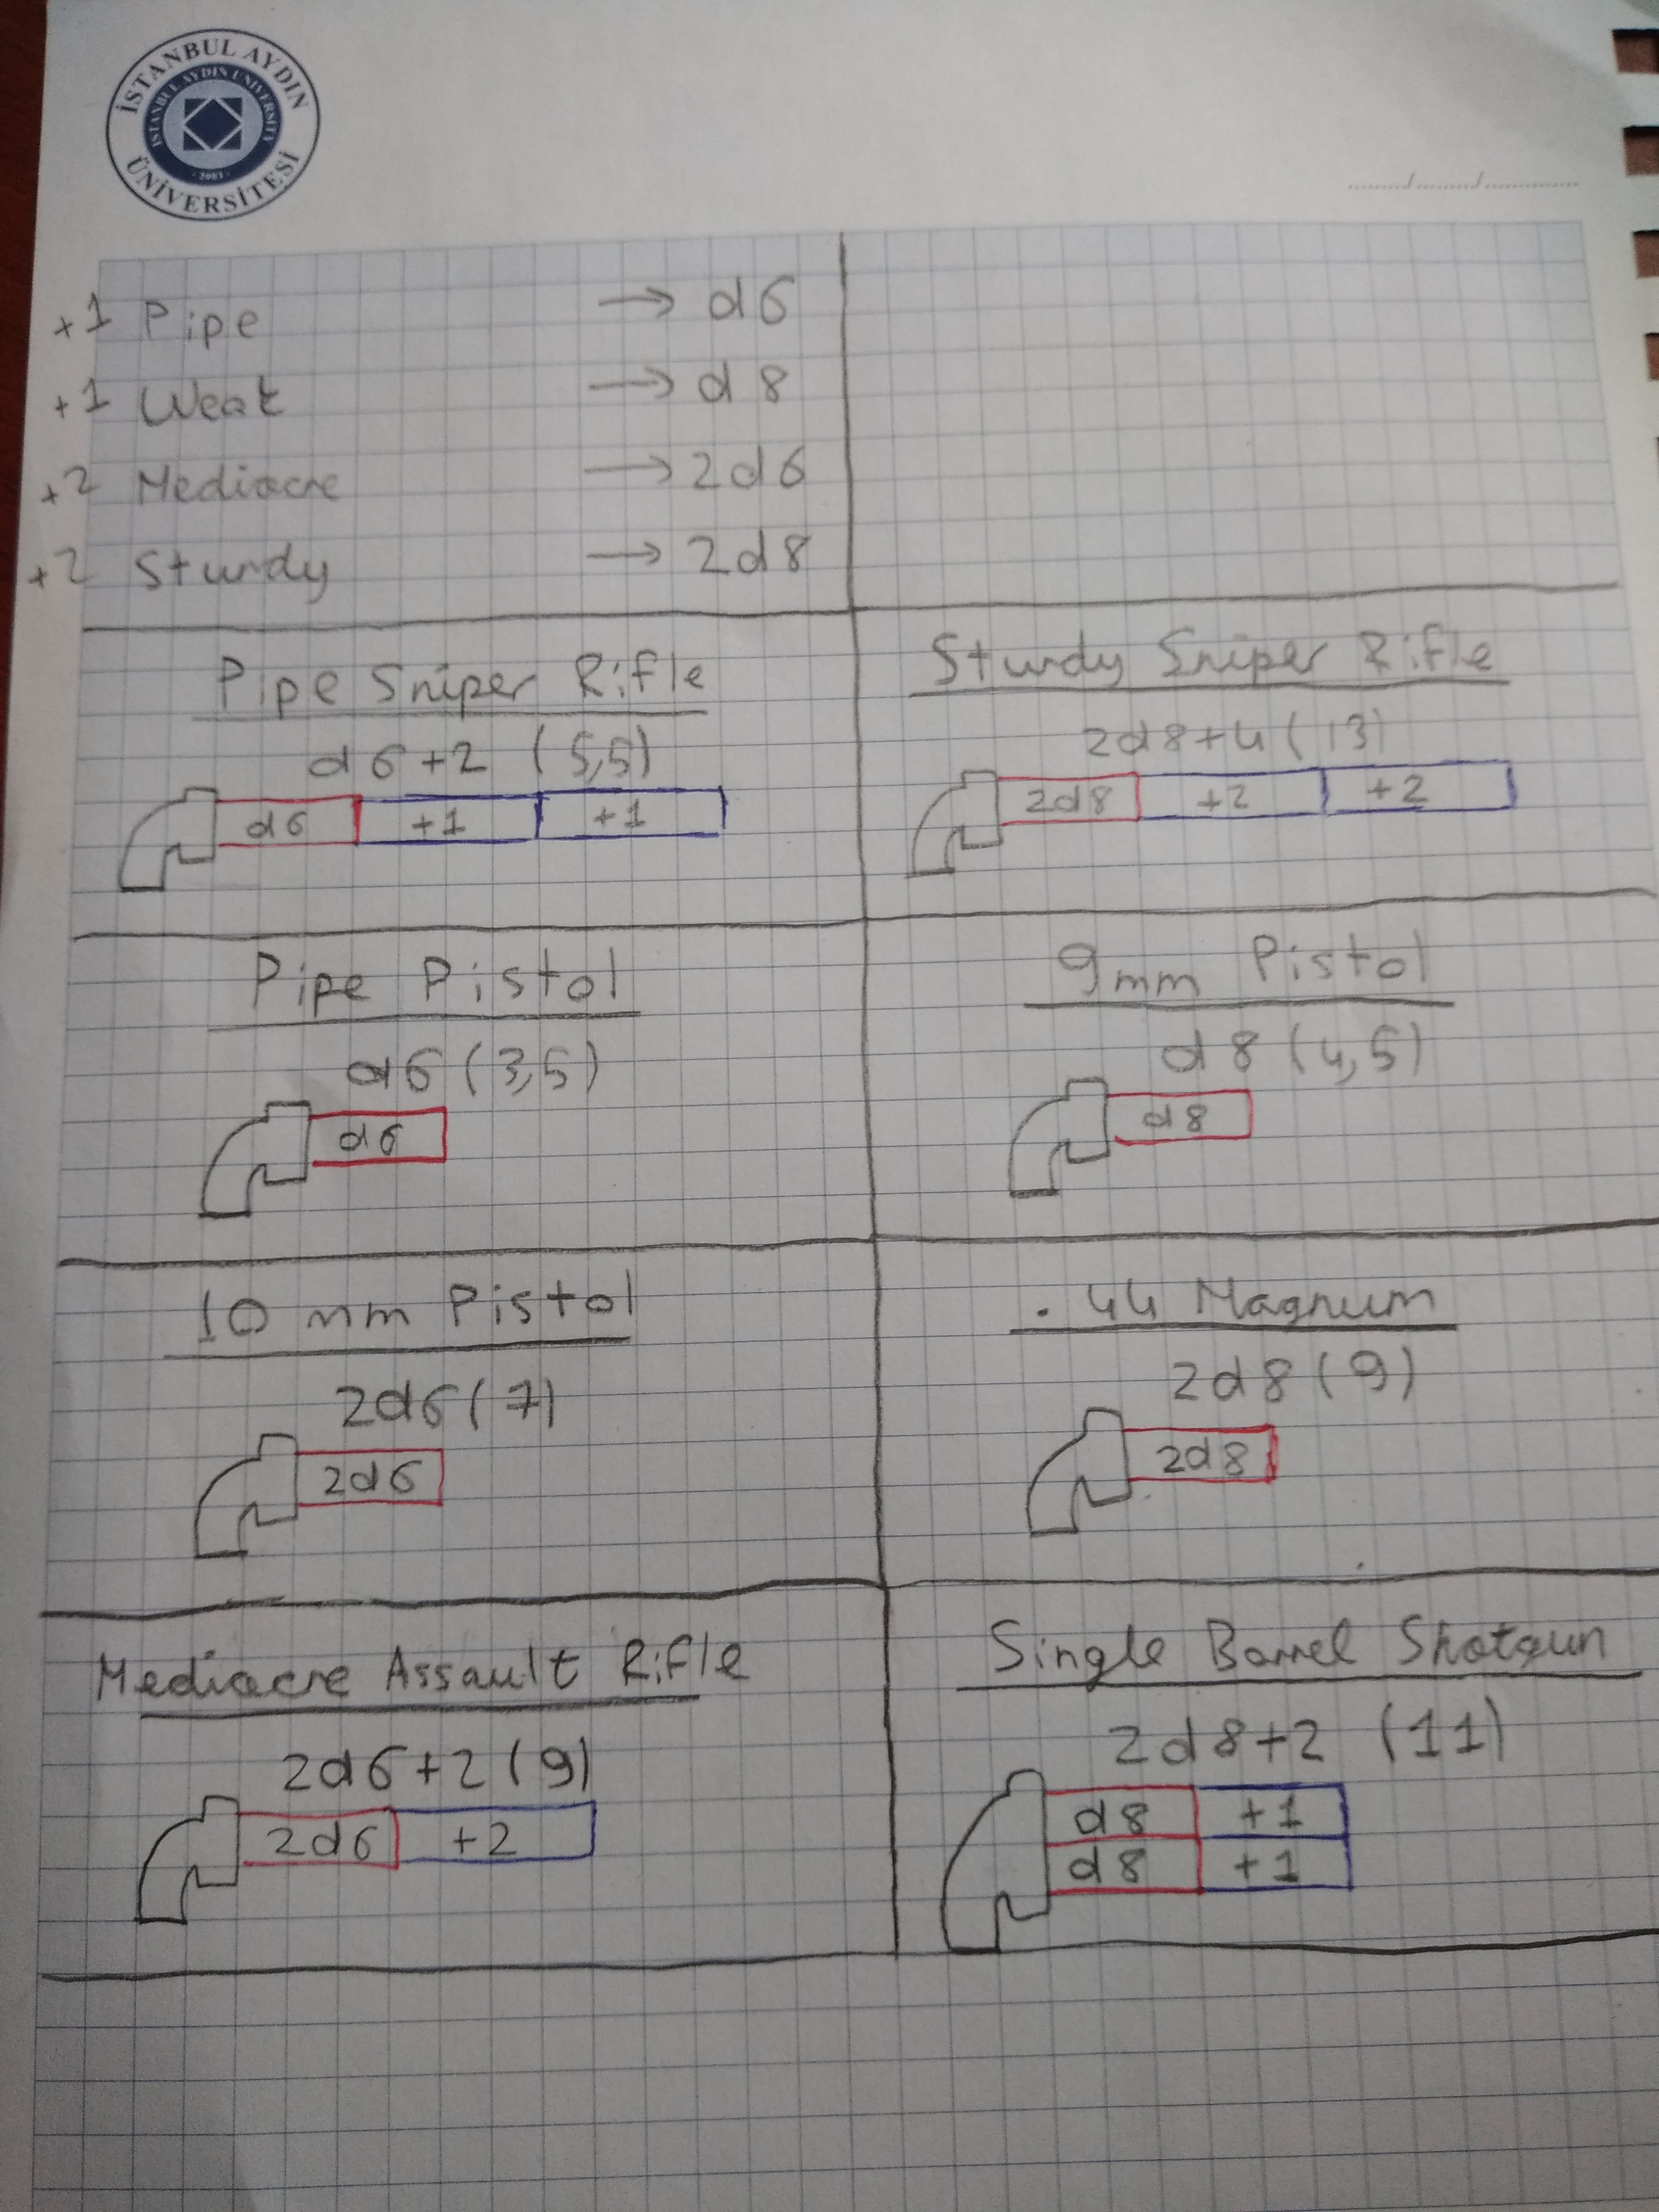 İSTANBUL AYDIN
ÜNİVERSİTESİ
ISTANBUL AYDIN UNIVERSITY
· 2003 ·
......../......../..............
+1 Pipe → d6
+1 Weak → d8
+2 Mediocre → 2d6
+2 Sturdy → 2d8
Pipe Sniper Rifle
d6+2 (5,5)
d6 +1 +1
Sturdy Sniper Rifle
2d8+4 (13)
2d8 +2 +2
Pipe Pistol
d6 (3,5)
d6
9mm Pistol
d8 (4,5)
d8
10 mm Pistol
2d6 (7)
2d6
.44 Magnum
2d8 (9)
2d8
Mediocre Assault Rifle
2d6+2 (9)
2d6 +2
Single Barrel Shotgun
2d8+2 (11)
d8 +1
d8 +1